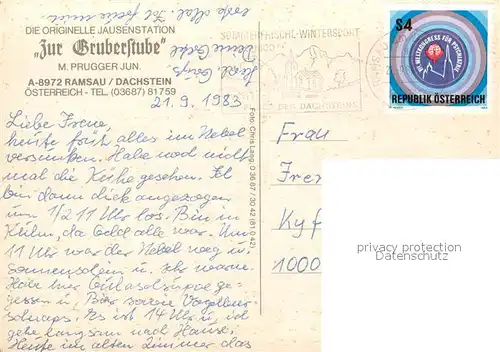 DIE ORIGINELLE JAUSENSTATION
"Zur Gruberstube"
M. PRUGGER JUN.
A-8972 RAMSAU / DACHSTEIN
ÖSTERREICH - TEL. (03687) 81759
21.9.1983
Liebe Irene
heute früh alles im Nebel
versunken. Habe noch nicht
mal die Kühe gesehen. Ich
bin dann dick angezogen
um 1/2 11 Uhr los. Bin in
da Geld alle war. Um
11 Uhr war der Nebel weg u.
Sonnenschein u. sehr warm.
Habe hier Gulaschsuppe ge-
gessen u. Bier sowie Vogelbeer-
schnaps. Es ist 14 Uhr u. ich
gehe langsam nach Hause.
Heute im alten Zimmer das
Foto: Chris Lang 0 36 87 / 30 42 (81 042)
SOMMERFRISCHE-WINTERSPORT
DER DACHSTEIN
S4
WELTKONGRESS FÜR PSYCHIATRIE
REPUBLIK ÖSTERREICH
Frau
Kyf
1000
privacy protection
Datenschutz